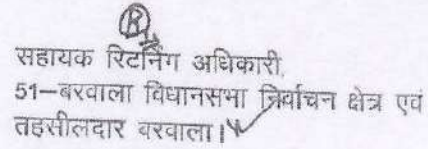 सहायक रिटर्निंग अधिकारी,
51-बरवाला विधानसभा निर्वाचन क्षेत्र एवं
तहसीलदार बरवाला।